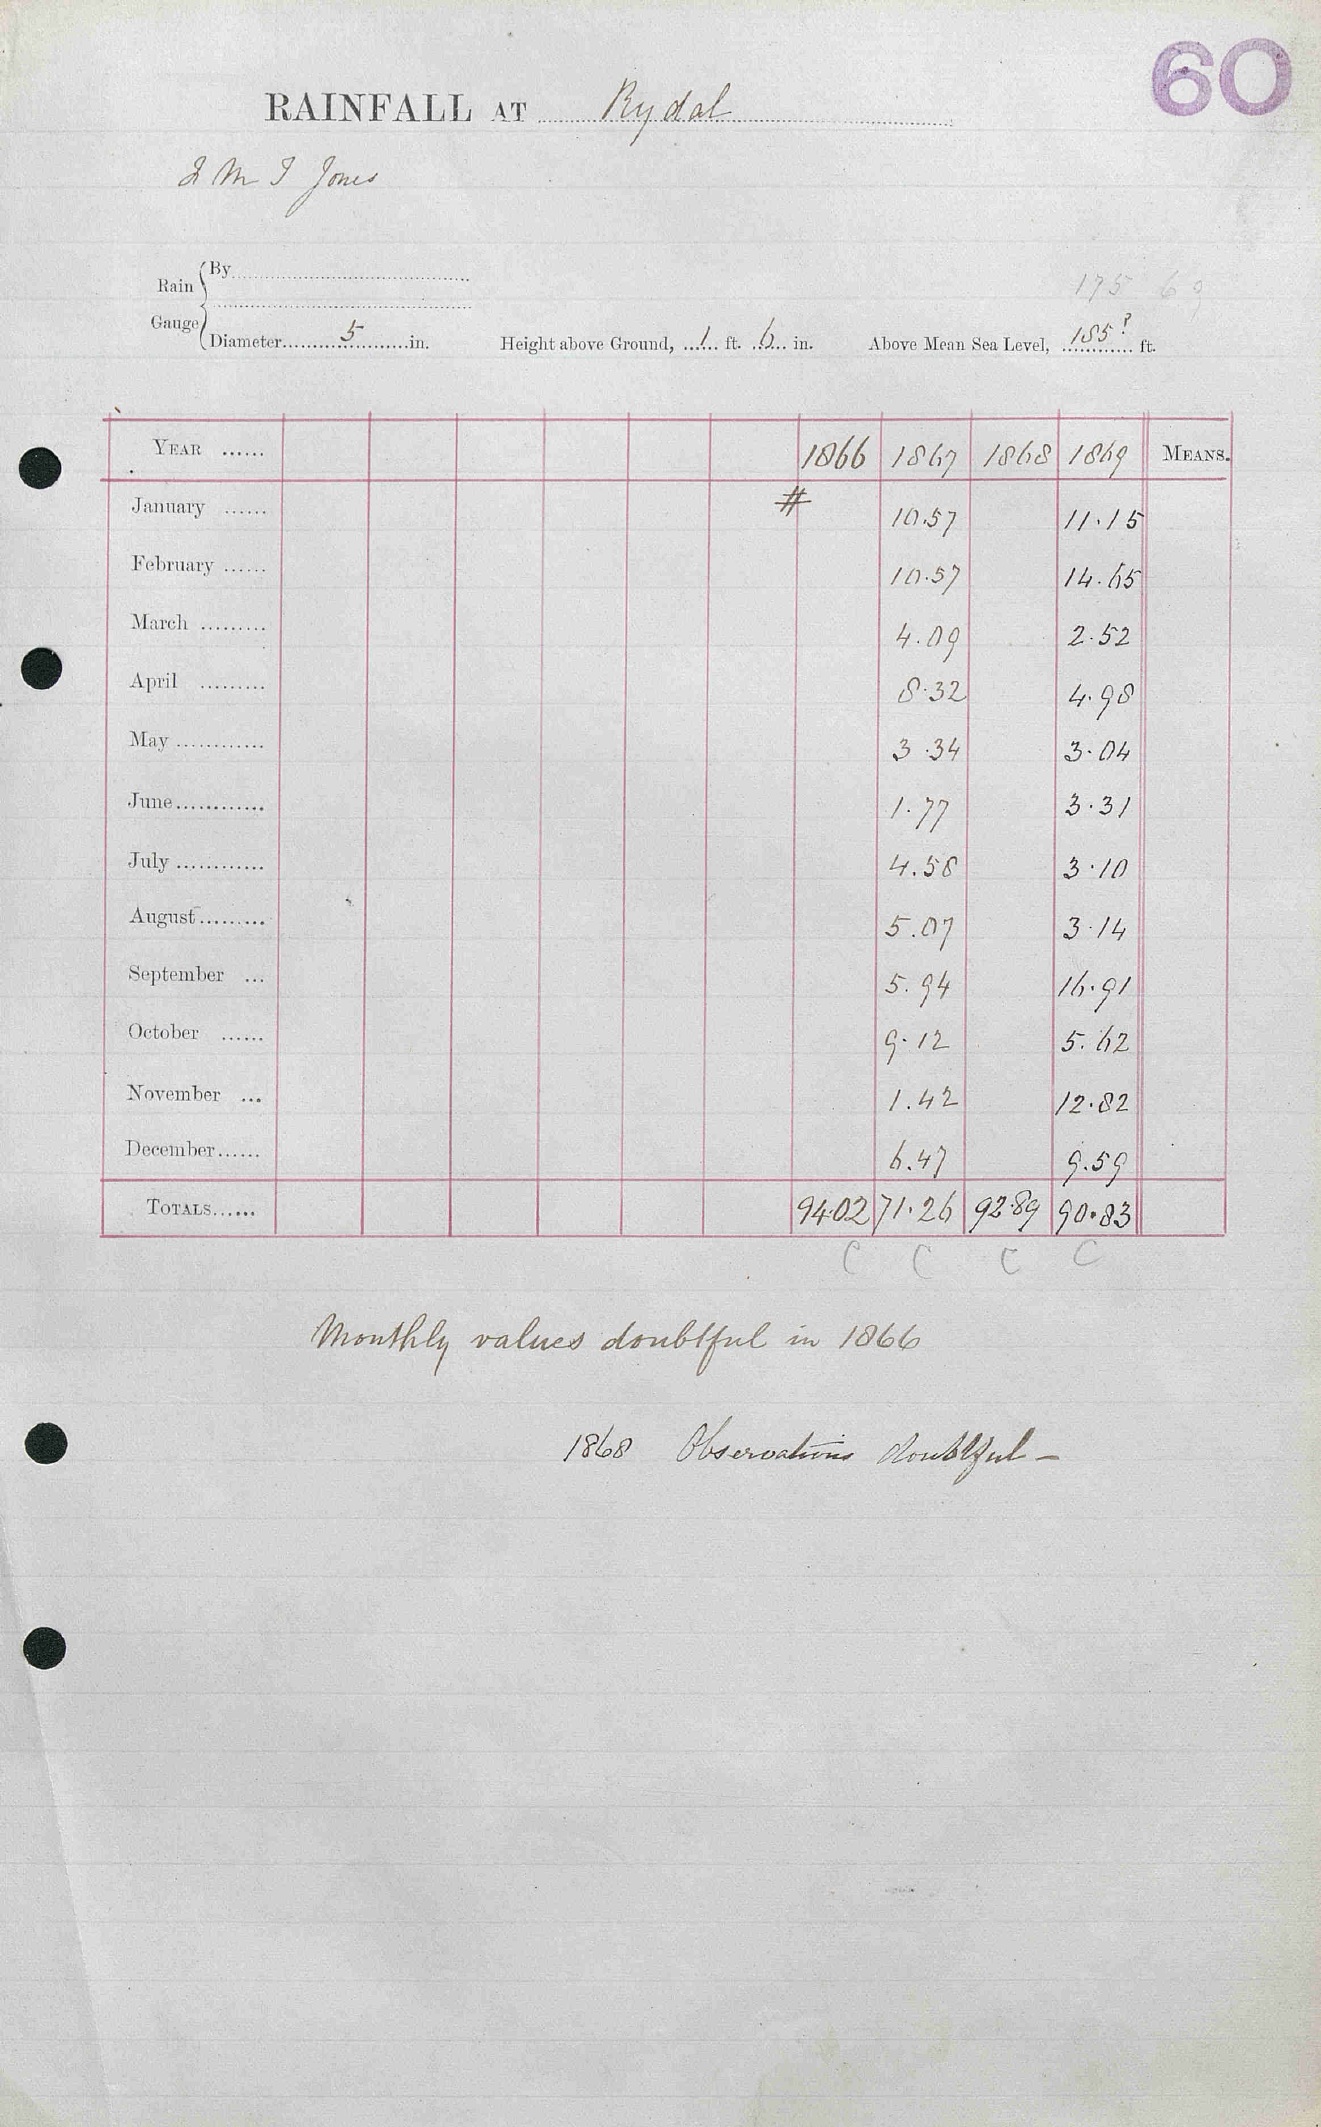 60
RAINFALL AT Rydal
J M I Jones
Rain Gauge { By
Diameter 5 in. Height above Ground, 1 ft. 6 in. Above Mean Sea Level, 185? ft.
175
YEAR ...... 1866 1867 1868 1869 MEANS.
January ...... # 10.57 11.15
February ...... 10.57 14.65
March ......... 4.09 2.52
April ......... 8.32 4.98
May ............ 3.34 3.04
June ............ 1.77 3.31
July ............ 4.58 3.10
August ......... 5.07 3.14
September ... 5.94 16.91
October ...... 9.12 5.62
November ... 1.42 12.82
December ...... 6.47 9.59
TOTALS ...... 94.02 71.26 92.89 90.83
C C C C
Monthly values doubtful in 1866
1868 Observations doubtful —